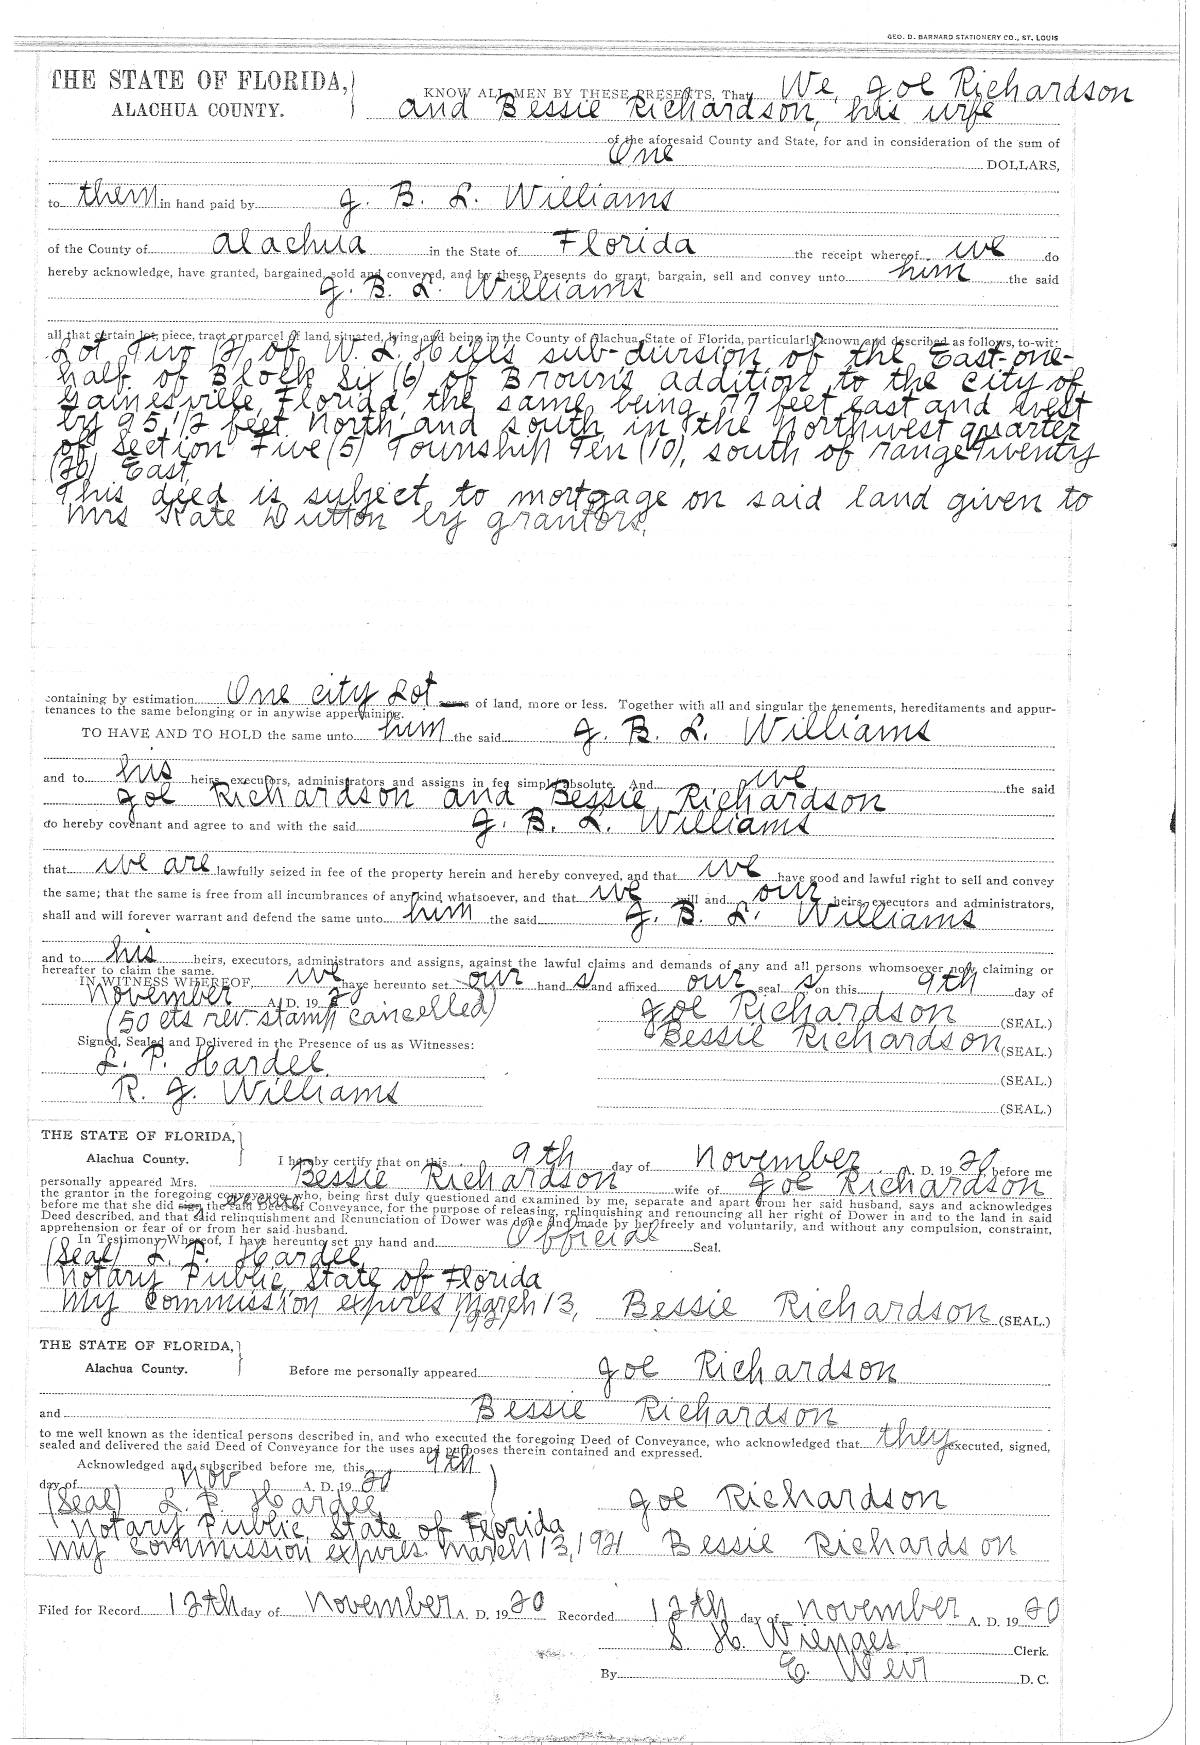 GEO. D. BARNARD STATIONERY CO., ST. LOUIS
THE STATE OF FLORIDA,
ALACHUA COUNTY.
KNOW ALL MEN BY THESE PRESENTS, That We, Joe Richardson
and Bessie Richardson, his wife
of the aforesaid County and State, for and in consideration of the sum of
One DOLLARS,
to them in hand paid by J. B. L. Williams
of the County of Alachua in the State of Florida the receipt whereof we do
hereby acknowledge, have granted, bargained, sold and conveyed, and by these Presents do grant, bargain, sell and convey unto him the said
J. B. L. Williams
all that certain lot, piece, tract or parcel of land situated, lying and being in the County of Alachua, State of Florida, particularly known and described as follows, to-wit:
Lot Two (2) of W. L. Hill's sub-division of the East one-
half of Block Six (6) of Brown's addition to the city of
Gainesville, Florida, the same being 77 feet east and west
by 95 1/2 feet North and south in the Northwest quarter
of Section Five (5) Township Ten (10), south of range Twenty
(20) East.
This deed is subject to mortgage on said land given to
Mrs Kate Dutton by grantors.
containing by estimation One city Lot acres of land, more or less. Together with all and singular the tenements, hereditaments and appur-
tenances to the same belonging or in anywise appertaining.
TO HAVE AND TO HOLD the same unto him the said J. B. L. Williams
and to his heirs, executors, administrators and assigns in fee simple absolute. And we the said
Joe Richardson and Bessie Richardson
do hereby covenant and agree to and with the said J. B. L. Williams
that we are lawfully seized in fee of the property herein and hereby conveyed, and that we have good and lawful right to sell and convey
the same; that the same is free from all incumbrances of any kind whatsoever, and that we will and our heirs, executors and administrators,
shall and will forever warrant and defend the same unto him the said J. B. L. Williams
and to his heirs, executors, administrators and assigns, against the lawful claims and demands of any and all persons whomsoever now claiming or
hereafter to claim the same.
IN WITNESS WHEREOF, we have hereunto set our hand s and affixed our seal s on this 9th day of
November A. D. 1920
(50 cts rev. stamp cancelled)
Joe Richardson (SEAL.)
Signed, Sealed and Delivered in the Presence of us as Witnesses:
Bessie Richardson (SEAL.)
L. P. Hardee
(SEAL.)
R. J. Williams
(SEAL.)
THE STATE OF FLORIDA,
Alachua County.
I hereby certify that on this 9th day of November A. D. 1920 before me
personally appeared Mrs. Bessie Richardson wife of Joe Richardson
the grantor in the foregoing conveyance, who, being first duly questioned and examined by me, separate and apart from her said husband, says and acknowledges
before me that she did sign the said Deed of Conveyance, for the purpose of releasing, relinquishing and renouncing all her right of Dower in and to the land in said
Deed described, and that said relinquishment and Renunciation of Dower was done and made by her freely and voluntarily, and without any compulsion, constraint,
apprehension or fear of or from her said husband.
In Testimony Whereof, I have hereunto set my hand and Official Seal.
(Seal) L. P. Hardee
Notary Public, State of Florida
My Commission expires March 13,
1921
Bessie Richardson (SEAL.)
THE STATE OF FLORIDA,
Alachua County.
Before me personally appeared Joe Richardson
and Bessie Richardson
to me well known as the identical persons described in, and who executed the foregoing Deed of Conveyance, who acknowledged that they executed, signed,
sealed and delivered the said Deed of Conveyance for the uses and purposes therein contained and expressed.
Acknowledged and subscribed before me, this 9th
day of Nov A. D. 1920
(Seal) L. P. Hardee
Joe Richardson
Notary Public, State of Florida
My Commission expires March 13, 1921 Bessie Richardson
Filed for Record 12th day of November A. D. 1920 Recorded 12th day of November A. D. 1920
S. H. Wienges Clerk.
By E. Weir D. C.